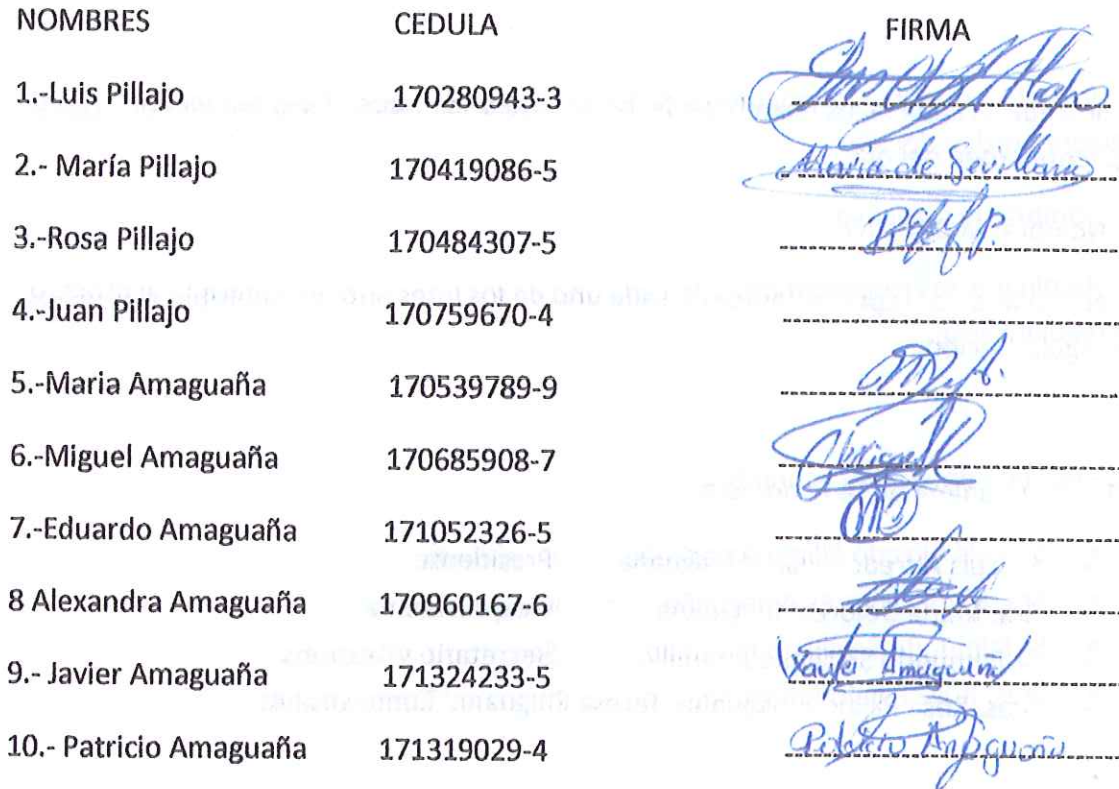 NOMBRES CEDULA FIRMA
1.-Luis Pillajo 170280943-3
2.- María Pillajo 170419086-5 Maria de Sevillano
3.-Rosa Pillajo 170484307-5
4.-Juan Pillajo 170759670-4
5.-Maria Amaguaña 170539789-9
6.-Miguel Amaguaña 170685908-7
7.-Eduardo Amaguaña 171052326-5
8 Alexandra Amaguaña 170960167-6
9.- Javier Amaguaña 171324233-5 Xavier Amaguaña
10.- Patricio Amaguaña 171319029-4 Patricio Amaguaña